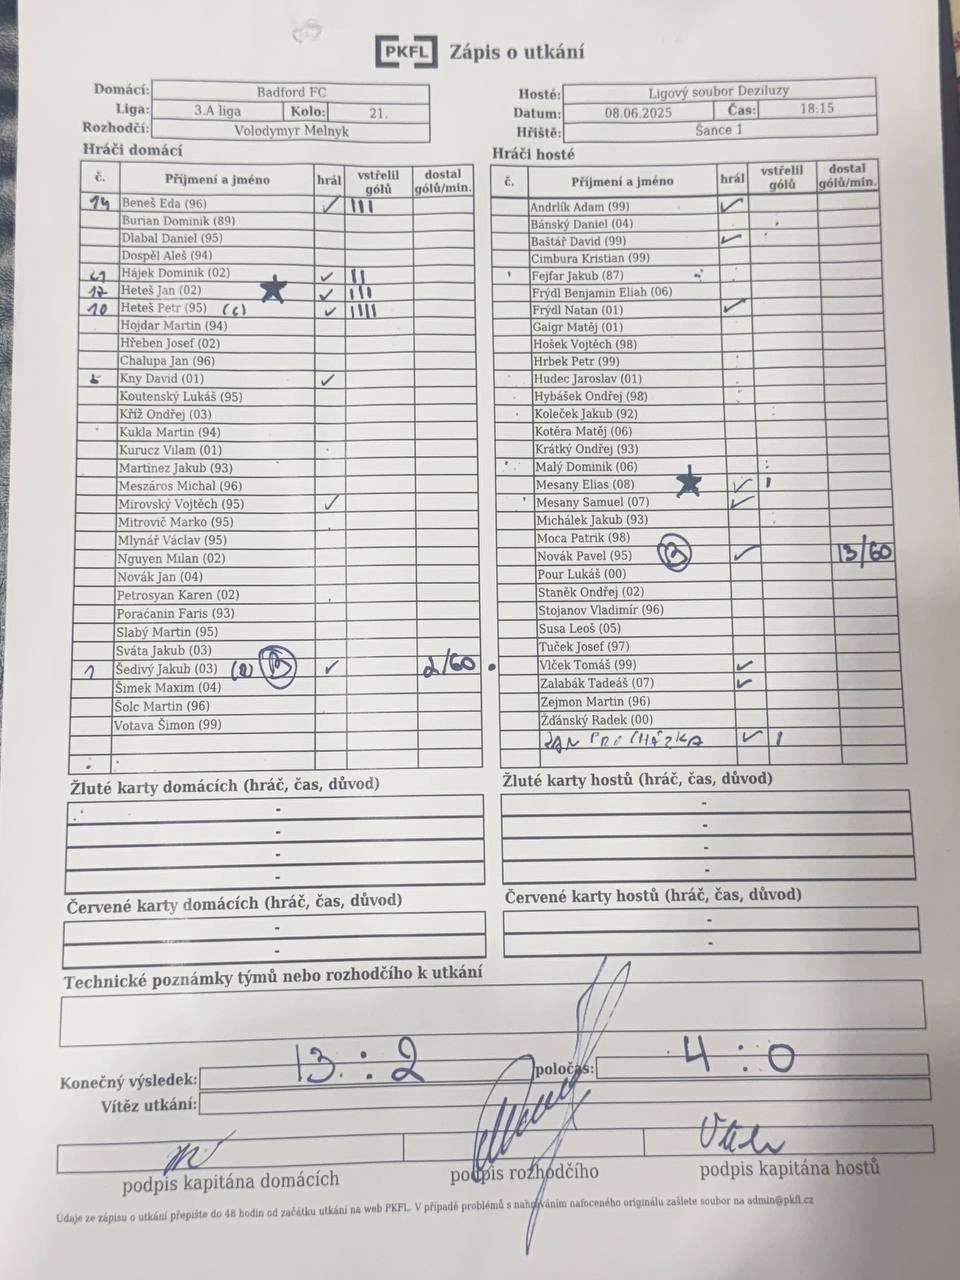 PKFL Zápis o utkání
Domácí: Badford FC
Liga: 3.A liga Kolo: 21.
Rozhodčí: Volodymyr Melnyk
Hosté: Ligový soubor Deziluzy
Datum: 08.06.2025 Čas: 18:15
Hřiště: Šance 1
Hráči domácí
č. Příjmení a jméno hrál vstřelil gólů dostal gólů/min.
14 Beneš Eda (96) ✓ III
Burian Dominik (89)
Dlabal Daniel (95)
Dospěl Aleš (94)
Hájek Dominik (02) ✓ II
17 Heteš Jan (02) ★ ✓ III
10 Heteš Petr (95) (c) ✓ IIII
Hojdar Martin (94)
Hřeben Josef (02)
Chalupa Jan (96)
Kny David (01) ✓
Koutenský Lukáš (95)
Kříž Ondřej (03)
Kukla Martin (94)
Kurucz Vilam (01)
Martinez Jakub (93)
Meszáros Michal (96)
Mirovský Vojtěch (95) ✓
Mitrovič Marko (95)
Mlynář Václav (95)
Nguyen Milan (02)
Novák Jan (04)
Petrosyan Karen (02)
Poraćanin Faris (93)
Slabý Martin (95)
Sváta Jakub (03)
1 Šedivý Jakub (03) (B) ✓ 2/60
Šimek Maxim (04)
Šolc Martin (96)
Votava Šimon (99)
Hráči hosté
č. Příjmení a jméno hrál vstřelil gólů dostal gólů/min.
Andrlík Adam (99) ✓
Bánský Daniel (04)
Baštář David (99) ✓
Cimbura Kristian (99)
Fejfar Jakub (87)
Frýdl Benjamin Eliah (06)
Frýdl Natan (01) ✓
Gaigr Matěj (01)
Hošek Vojtěch (98)
Hrbek Petr (99)
Hudec Jaroslav (01)
Hybášek Ondřej (98)
Koleček Jakub (92)
Kotěra Matěj (06)
Krátký Ondřej (93)
Malý Dominik (06)
Mesany Elias (08) ★ ✓ I
Mesany Samuel (07) ✓
Michálek Jakub (93)
Moca Patrik (98)
Novák Pavel (95) (B) ✓ 13/60
Pour Lukáš (00)
Staněk Ondřej (02)
Stojanov Vladimír (96)
Susa Leoš (05)
Tuček Josef (97)
Vlček Tomáš (99) ✓
Zalabák Tadeáš (07) ✓
Zejmon Martin (96)
Žďánský Radek (00)
JAN PROCHÁZKA ✓ I
Žluté karty domácích (hráč, čas, důvod)
-
-
-
-
Žluté karty hostů (hráč, čas, důvod)
-
-
-
-
Červené karty domácích (hráč, čas, důvod)
-
-
Červené karty hostů (hráč, čas, důvod)
-
-
Technické poznámky týmů nebo rozhodčího k utkání
Konečný výsledek: 13 : 2 poločas: 4 : 0
Vítěz utkání:
podpis kapitána domácích podpis rozhodčího podpis kapitána hostů
Údaje ze zápisu o utkání přepište do 48 hodin od začátku utkání na web PKFL. V případě problémů s nahráváním nafoceného originálu zašlete soubor na admin@pkfl.cz